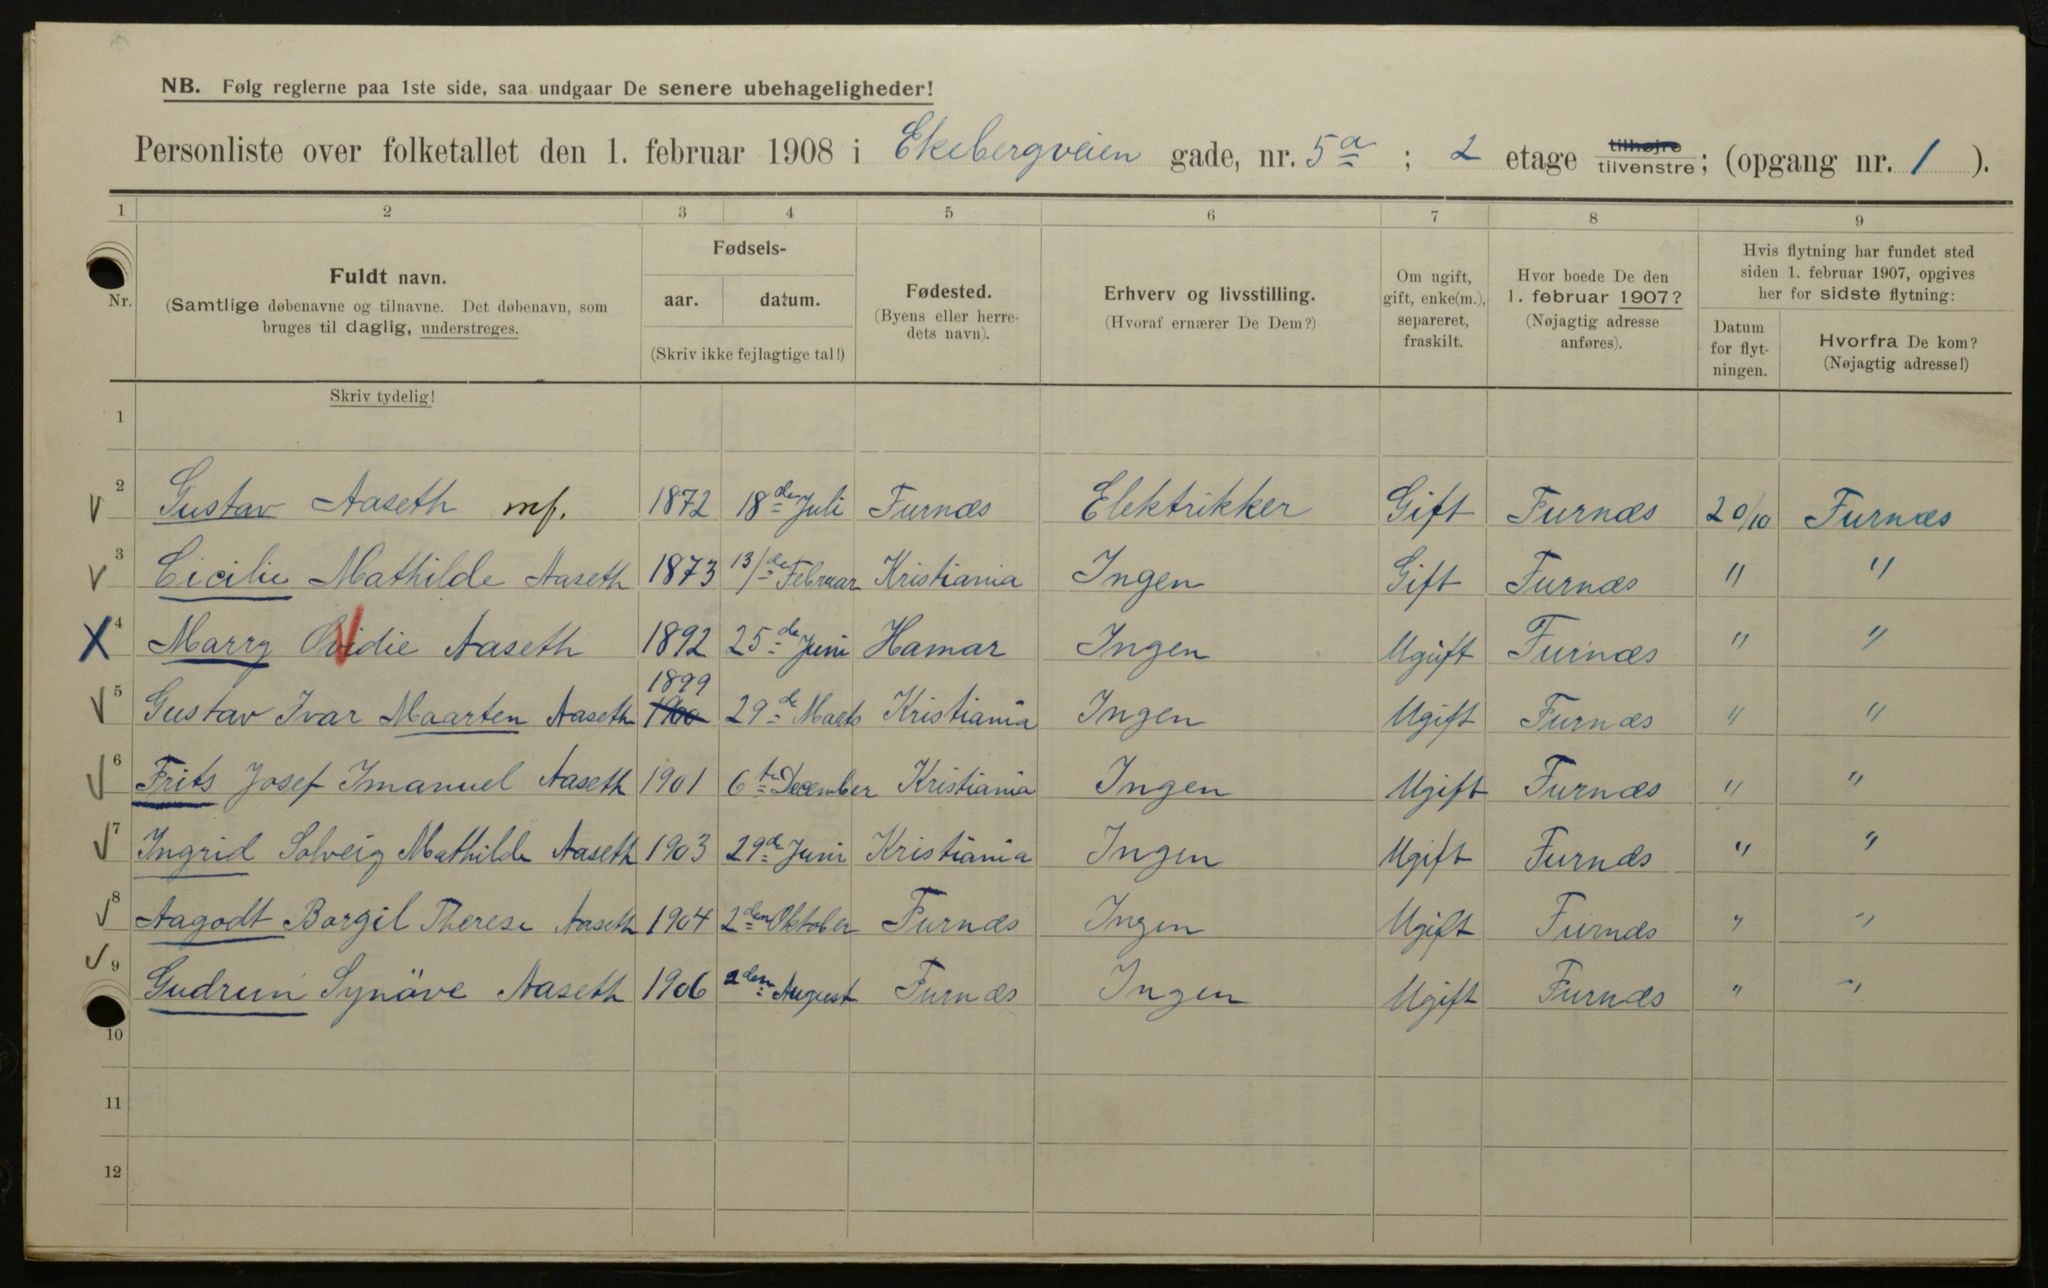 NB. Følg reglerne paa 1ste side, saa undgaar De senere ubehageligheder!
Personliste over folketallet den 1. februar 1908 i Ekebergveien gade, nr. 5a ; 2 etage tilhøjre tilvenstre; (opgang nr. 1 ).
1 2 3 4 5 6 7 8 9
Nr.
Fuldt navn.
(Samtlige døbenavne og tilnavne. Det døbenavn, som
bruges til daglig, understreges.
Skriv tydelig!
Fødsels-
aar. datum.
(Skriv ikke fejlagtige tal!)
Fødested.
(Byens eller herre-
dets navn).
Erhverv og livsstilling.
(Hvoraf ernærer De Dem?)
Om ugift,
gift, enke(m.),
separeret,
fraskilt.
Hvor boede De den
1. februar 1907?
(Nøjagtig adresse
anføres).
Hvis flytning har fundet sted
siden 1. februar 1907, opgives
her for sidste flytning:
Datum
for flyt-
ningen.
Hvorfra De kom?
(Nøjagtig adresse!)
1
2 Gustav Aaseth mf. 1872 18de Juli Furnæs Elektrikker Gift Furnæs 20/10 Furnæs
3 Cicilie Mathilde Aaseth 1873 13/de Februar Kristiania Ingen Gift Furnæs " "
4 Marry Ovidie Aaseth 1892 25de Juni Hamar Ingen Ugift Furnæs " "
1899
5 Gustav Ivar Maarten Aaseth 1900 29de Marts Kristiania Ingen Ugift Furnæs " "
6 Frits Josef Imanuel Aaseth 1901 6te December Kristiania Ingen Ugift Furnæs " "
7 Ingrid Solveig Mathilde Aaseth 1903 29de Juni Kristiania Ingen Ugift Furnæs " "
8 Aagodt Borgil Therese Aaseth 1904 2den Oktober Furnæs Ingen Ugift Furnæs " "
9 Gudrun Synöve Aaseth 1906 2den August Furnæs Ingen Ugift Furnæs " "
10
11
12